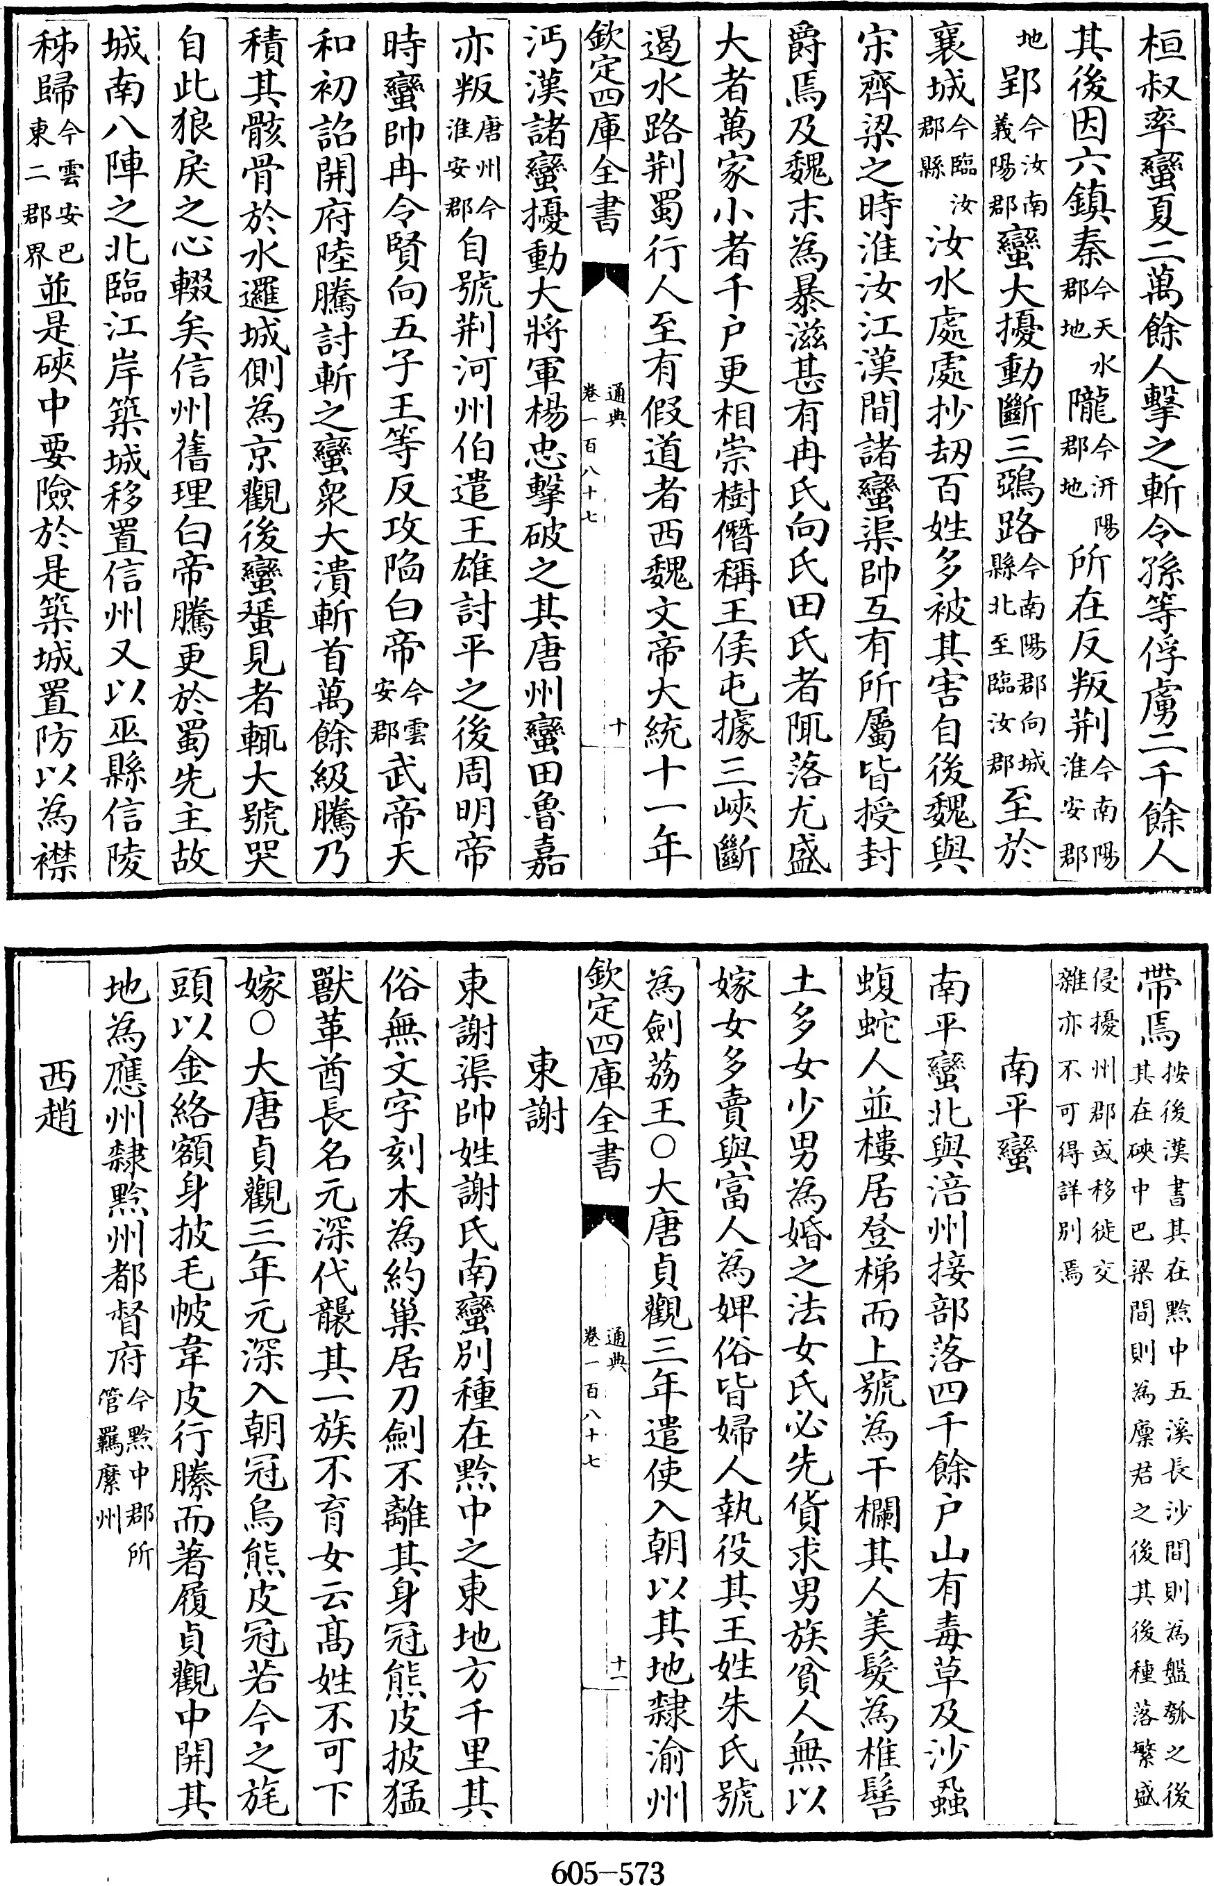 桓叔率蠻夏二萬餘人擊之斬令孫等俘虜二千餘人
其後因六鎮秦今天水郡地隴今汧陽郡地所在反叛荆今南陽淮安郡
地郢今汝南義陽郡蠻大擾動斷三鵶路今南陽郡向城縣北至臨汝郡至於
襄城今臨汝郡縣汝水處處抄刼百姓多被其害自後魏與
宋齊梁之時淮汝江漢間諸蠻渠帥互有所屬皆授封
爵焉及魏末為暴滋甚有冉氏向氏田氏者陬落尤盛
大者萬家小者千户更相崇樹僭稱王侯屯據三峽斷
遏水路荆蜀行人至有假道者西魏文帝大統十一年
欽定四庫全書 通典 卷一百八十七 十
沔漢諸蠻擾動大將軍楊忠擊破之其唐州蠻田魯嘉
亦叛唐州今淮安郡自號荆河州伯遣王雄討平之後周明帝
時蠻帥冉令賢向五子王等反攻陷白帝今雲安郡武帝天
和初詔開府陸騰討斬之蠻衆大潰斬首萬餘級騰乃
積其骸骨於水邏城側為京觀後蠻蜑見者輒大號哭
自此狼戾之心輟矣信州舊理白帝騰更於蜀先主故
城南八陣之北臨江岸築城移置信州又以巫縣信陵
秭歸今雲安巴東二郡界並是硤中要險於是築城置防以為襟
帶焉按後漢書其在黔中五溪長沙間則為盤瓠之後其在硤中巴梁間則為廪君之後其後種落繁盛
侵擾州郡或移徙交雜亦不可得詳别焉
南平蠻
南平蠻北與涪州接部落四千餘户山有毒草及沙蝨
蝮蛇人並樓居登梯而上號為干欄其人美髮為椎髻
土多女少男為婚之法女氏必先貨求男族貧人無以
嫁女多賣與富人為婢俗皆婦人執役其王姓朱氏號
為劍荔王○大唐貞觀三年遣使入朝以其地隸渝州
欽定四庫全書 通典 卷一百八十七 十一
東謝
東謝渠帥姓謝氏南蠻别種在黔中之東地方千里其
俗無文字刻木為約巢居刀劍不離其身冠熊皮披猛
獸革酋長名元深代襲其一族不育女云髙姓不可下
嫁○大唐貞觀三年元深入朝冠烏熊皮冠若今之旄
頭以金絡額身披毛帔韋皮行縢而著履貞觀中開其
地為應州隸黔州都督府今黔中郡所管羈縻州
西趙
605-573